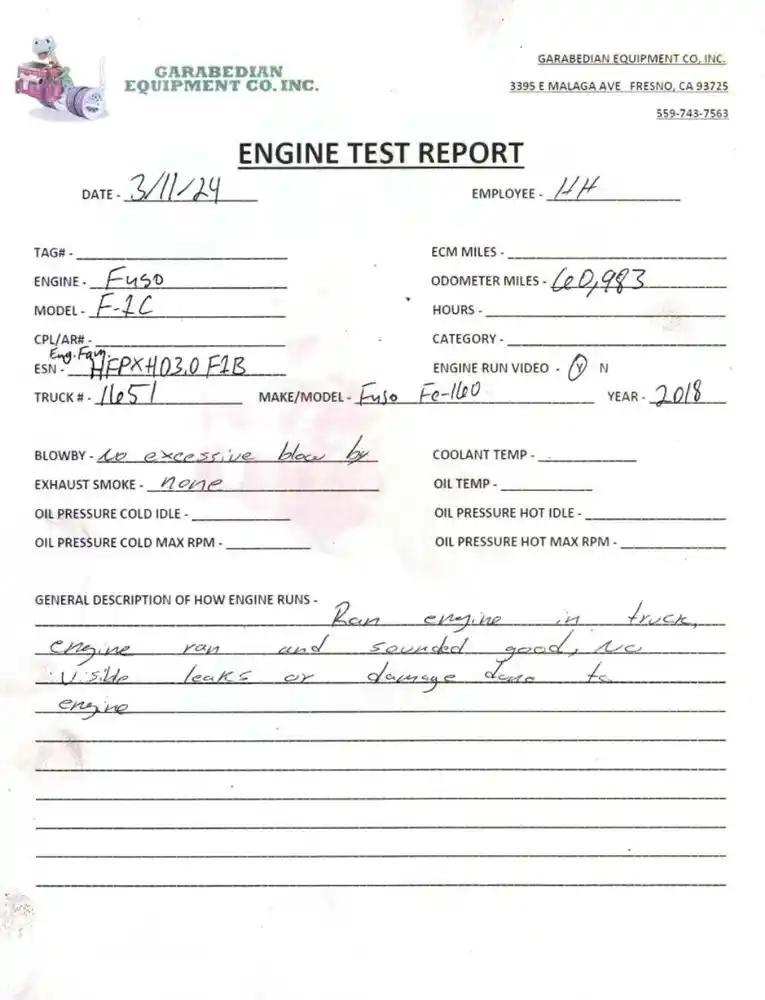 GARABEDIAN
EQUIPMENT CO. INC.
GARABEDIAN EQUIPMENT CO, INC.
3395 E MALAGA AVE FRESNO, CA 93725
559-743-7563
ENGINE TEST REPORT
DATE - 3/11/24 EMPLOYEE - HH
TAG# - ECM MILES -
ENGINE - Fuso ODOMETER MILES - 60,983
MODEL - F-1C HOURS -
CPL/AR# - CATEGORY -
Eng. Fam.
ESN - HFPXH03.0 F1B ENGINE RUN VIDEO - Y N
TRUCK # - 1651 MAKE/MODEL - Fuso Fe-160 YEAR - 2018
BLOWBY - no excessive blow by COOLANT TEMP -
EXHAUST SMOKE - none OIL TEMP -
OIL PRESSURE COLD IDLE - OIL PRESSURE HOT IDLE -
OIL PRESSURE COLD MAX RPM - OIL PRESSURE HOT MAX RPM -
GENERAL DESCRIPTION OF HOW ENGINE RUNS -
Ran engine in truck,
engine ran and sounded good, no
visible leaks or damage done to
engine